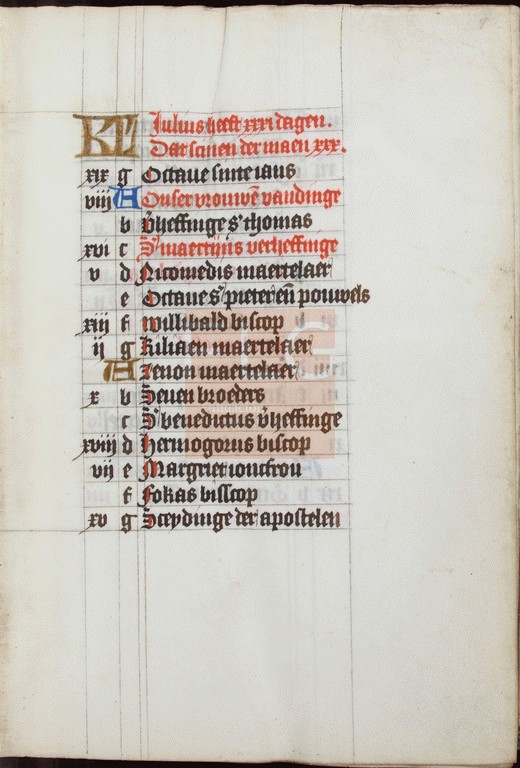 KL Iulius heeft xxxi dagen.
Dat scinen der maen xxx.
xix g Octaue sinte ians
viii A Onser vrouwē vandinge
b v̄heffinge s' thomas
xvi c S' maertijns verheffinge
v d Nicomedis maertelaer
e Octaue s' pieter eñ pouwels
xiii f willibald biscop
ij g kiliaen maertelaer
A zenon maertelaer
x b Seuen broeders
c S' benedictus v̄heffinge
xviii d hermogorus biscop
vij e Margriet ioncfrou
f fokas bisscop
xv g Sceydinge der apostelen